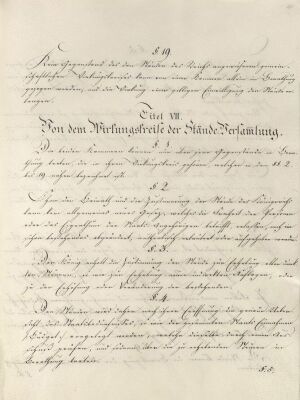 § 19.
Kein Gegenstand des den Ständen des Reichs angewiesenen gemein-
schaftlichen Wirkungskreises kann von einer Kammer allein in Berathung
gezogen werden, und die Wirkung einer gültigen Einwilligung der Stände er-
langen.
Titel VII.
Von dem Wirkungskreise der Stände-Versamlung.
§ 1.
Die beiden Kammern können nur über jene Gegenstände in Bera-
thung treten, die in ihren Wirkungskreis gehören, welcher in den §§ 2.
bis 19 näher bezeichnet ist.
§ 2.
Ohne den Beirath und die Zustimmung der Stände des Königreichs
kann kein allgemeines neues Gesetz, welches die Freiheit der Personen
oder das Eigenthum des Staats-Angehörigen betrifft, erlassen, noch ein
schon bestehendes abgeändert, authentisch erläutert oder aufgehoben werden.
§. 3.
Der König erholt die Zustimmung der Stände zur Erhebung aller direk-
ten Steuern, so wie zur Erhebung neuer indirekten Auflagen, oder
zu der Erhöhung oder Veränderung der bestehenden.
§. 4.
Den Ständen wird daher nach ihrer Eröffnung die genaue Ueber-
sicht des Staatsbedürfnisses, so wie der gesammten Staats-Einnahmen
(Budget) vorgelegt werden, welche dieselbe durch einen Aus-
schuß prüfen, und sodann über die zu erhebenden Steuern in
Berathung treten.
§. 5.